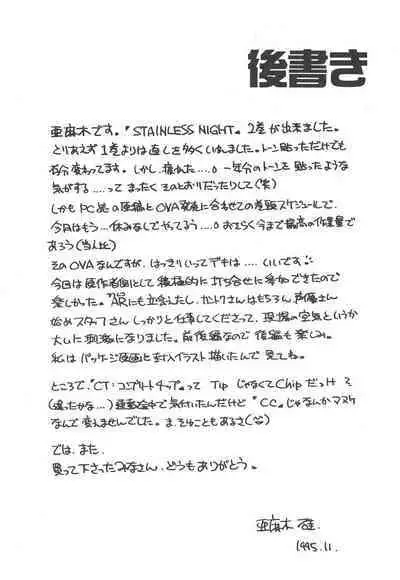 後書き
亜麻木です。『STAINLESS NIGHT』2巻が出来ました。
とりあえず1巻よりは直しを多くいれました。トーン貼っただけでも
変わってます。しかし、疲れた…。一年分のトーンを貼ったような
気がする……って まったくそのとおりだったりして(笑)
しかもPC誌の原稿とOVA発売に合わせての進行スケジュールで、
今月はもう…休みなしでやってる……。おそらく今まで最高の作業量で
あろう(当人比)
そのOVAなんですが、はっきりいってデキは……いいです。
今回は原作者側として積極的に打ち合せに参加できたので
楽しかった。『ARにも立会たし、カントクさんはもちろん、声優さん
始めスタッフさんしっかりと仕事してくださって、現場の空気というか
大いに刺激になりました。前後編なので後編も楽しみ。
私はパッケージ原画と封入イラスト描いたんで見てね。
ところで、"CT:コンプリートチップ"って Tip じゃなくてChip だっけ?
(違ったかな…)で気付いたんだけど"CC。"じゃなんかマヌケ
なんで変えませんでした。ま、そゆこともあるさ
では、また
買って下さったみなさん、どうもありがとう。
亜麻木
1995.11.